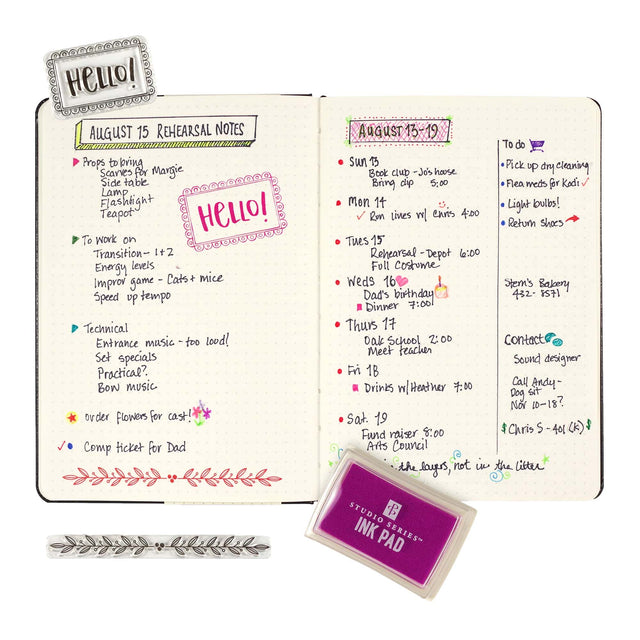 HELLO!
AUGUST 15 REHEARSAL NOTES
Props to bring
Scarves for Margie
Side table
Lamp
Flashlight
Teapot
HELLO!
To work on
Transition - 1+2
Energy levels
Improv game - Cats + mice
Speed up tempo
Technical
Entrance music - too loud!
Set specials
Practical?
Bow music
order flowers for cast!
Comp ticket for Dad
AUGUST 13-19
Sun 13
Book club - Jo's house
Bring dip 5:00
Mon 14
Run lines w/ Chris 4:00
Tues 15
Rehearsal - Depot 6:00
Full Costume
Weds 16
Dad's birthday
Dinner 7:00
Thurs 17
Oak School 2:00
Meet teacher
Fri 18
Drinks w/ Heather 7:00
Sat. 19
Fund raiser 8:00
Arts Council
To do
Pick up dry cleaning
Flea meds for Kodi
Light bulbs!
Return shoes
Stern's Bakery
432-8571
Contact
Sound designer
Call Andy-
Dog sit
Nov 10-18?
Chris S - 401(k)
in the layers, not in the litter
STUDIO SERIES™
INK PAD